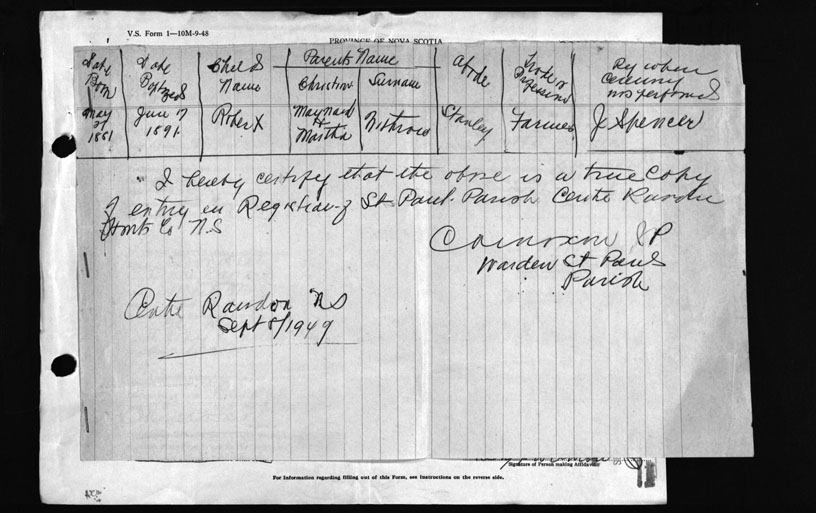 V.S. Form 1—10M-9-48
PROVINCE OF NOVA SCOTIA
Date Born
Date Baptized
Child S Name
Parents Name
Christian
Surname
Abode
Trade or Profession
By whom Ceremony was performed
May 21 1881
June 7 1891
Robert
Maynard & Martha
Withrow
Stanley
Farmer
J Spencer
I hereby certify that the above is a true Copy
of entry in Registrar of St. Paul. Parish Centre Rawdon
Hants Co N.S
JP
Warden St Pauls
Parish
Centre Rawdon NS
Sept 8/1949
Signature of Person making Affidavit
For Information regarding filling out of this Form, see Instructions on the reverse side.